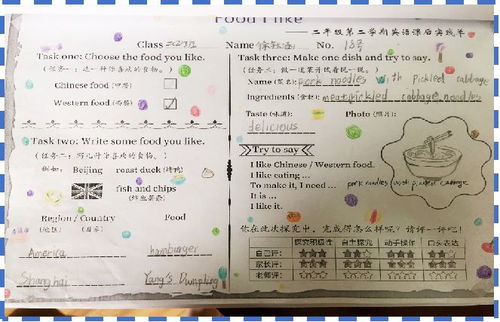 Food I like
——二年级第二学期英语课后实践单
Class
Name
No. 18号
Task one: Choose the food you like.
(任务一：选一种你喜欢的食物。)
Chinese food (中餐)
Western food (西餐)
Task two: Write some food you like.
(任务二：写几种你喜欢的食物。)
例如: Beijing roast duck (烤鸭)
fish and chips
(炸鱼薯条)
Region / Country Food
(地区) (国家)
America hamburger
Shanghai Yang's Dumpling
Task three: Make one dish and try to say.
(任务三：做一道菜并试着说一说。)
Name (菜名): pork noodles with pickled cabbage
Ingredients (食材): meat pickled cabbage noodles
Taste (味道): Photo (照片):
delicious
Try to say
I like Chinese / Western food.
I like eating ...
To make it, I need ...
It is ...
I like it.
pork noodles with pickled cabbage
你在此次探究中，完成得怎么样呢？请评一评吧！
探究积极性 自主探究 动手操作 口头表达
自己评: ★★★ ★★☆ ★★★ ★★☆
家长评: ★★★ ★★☆ ★★★ ★★☆
老师评: ★★★ ★★★ ★★★ ★★★